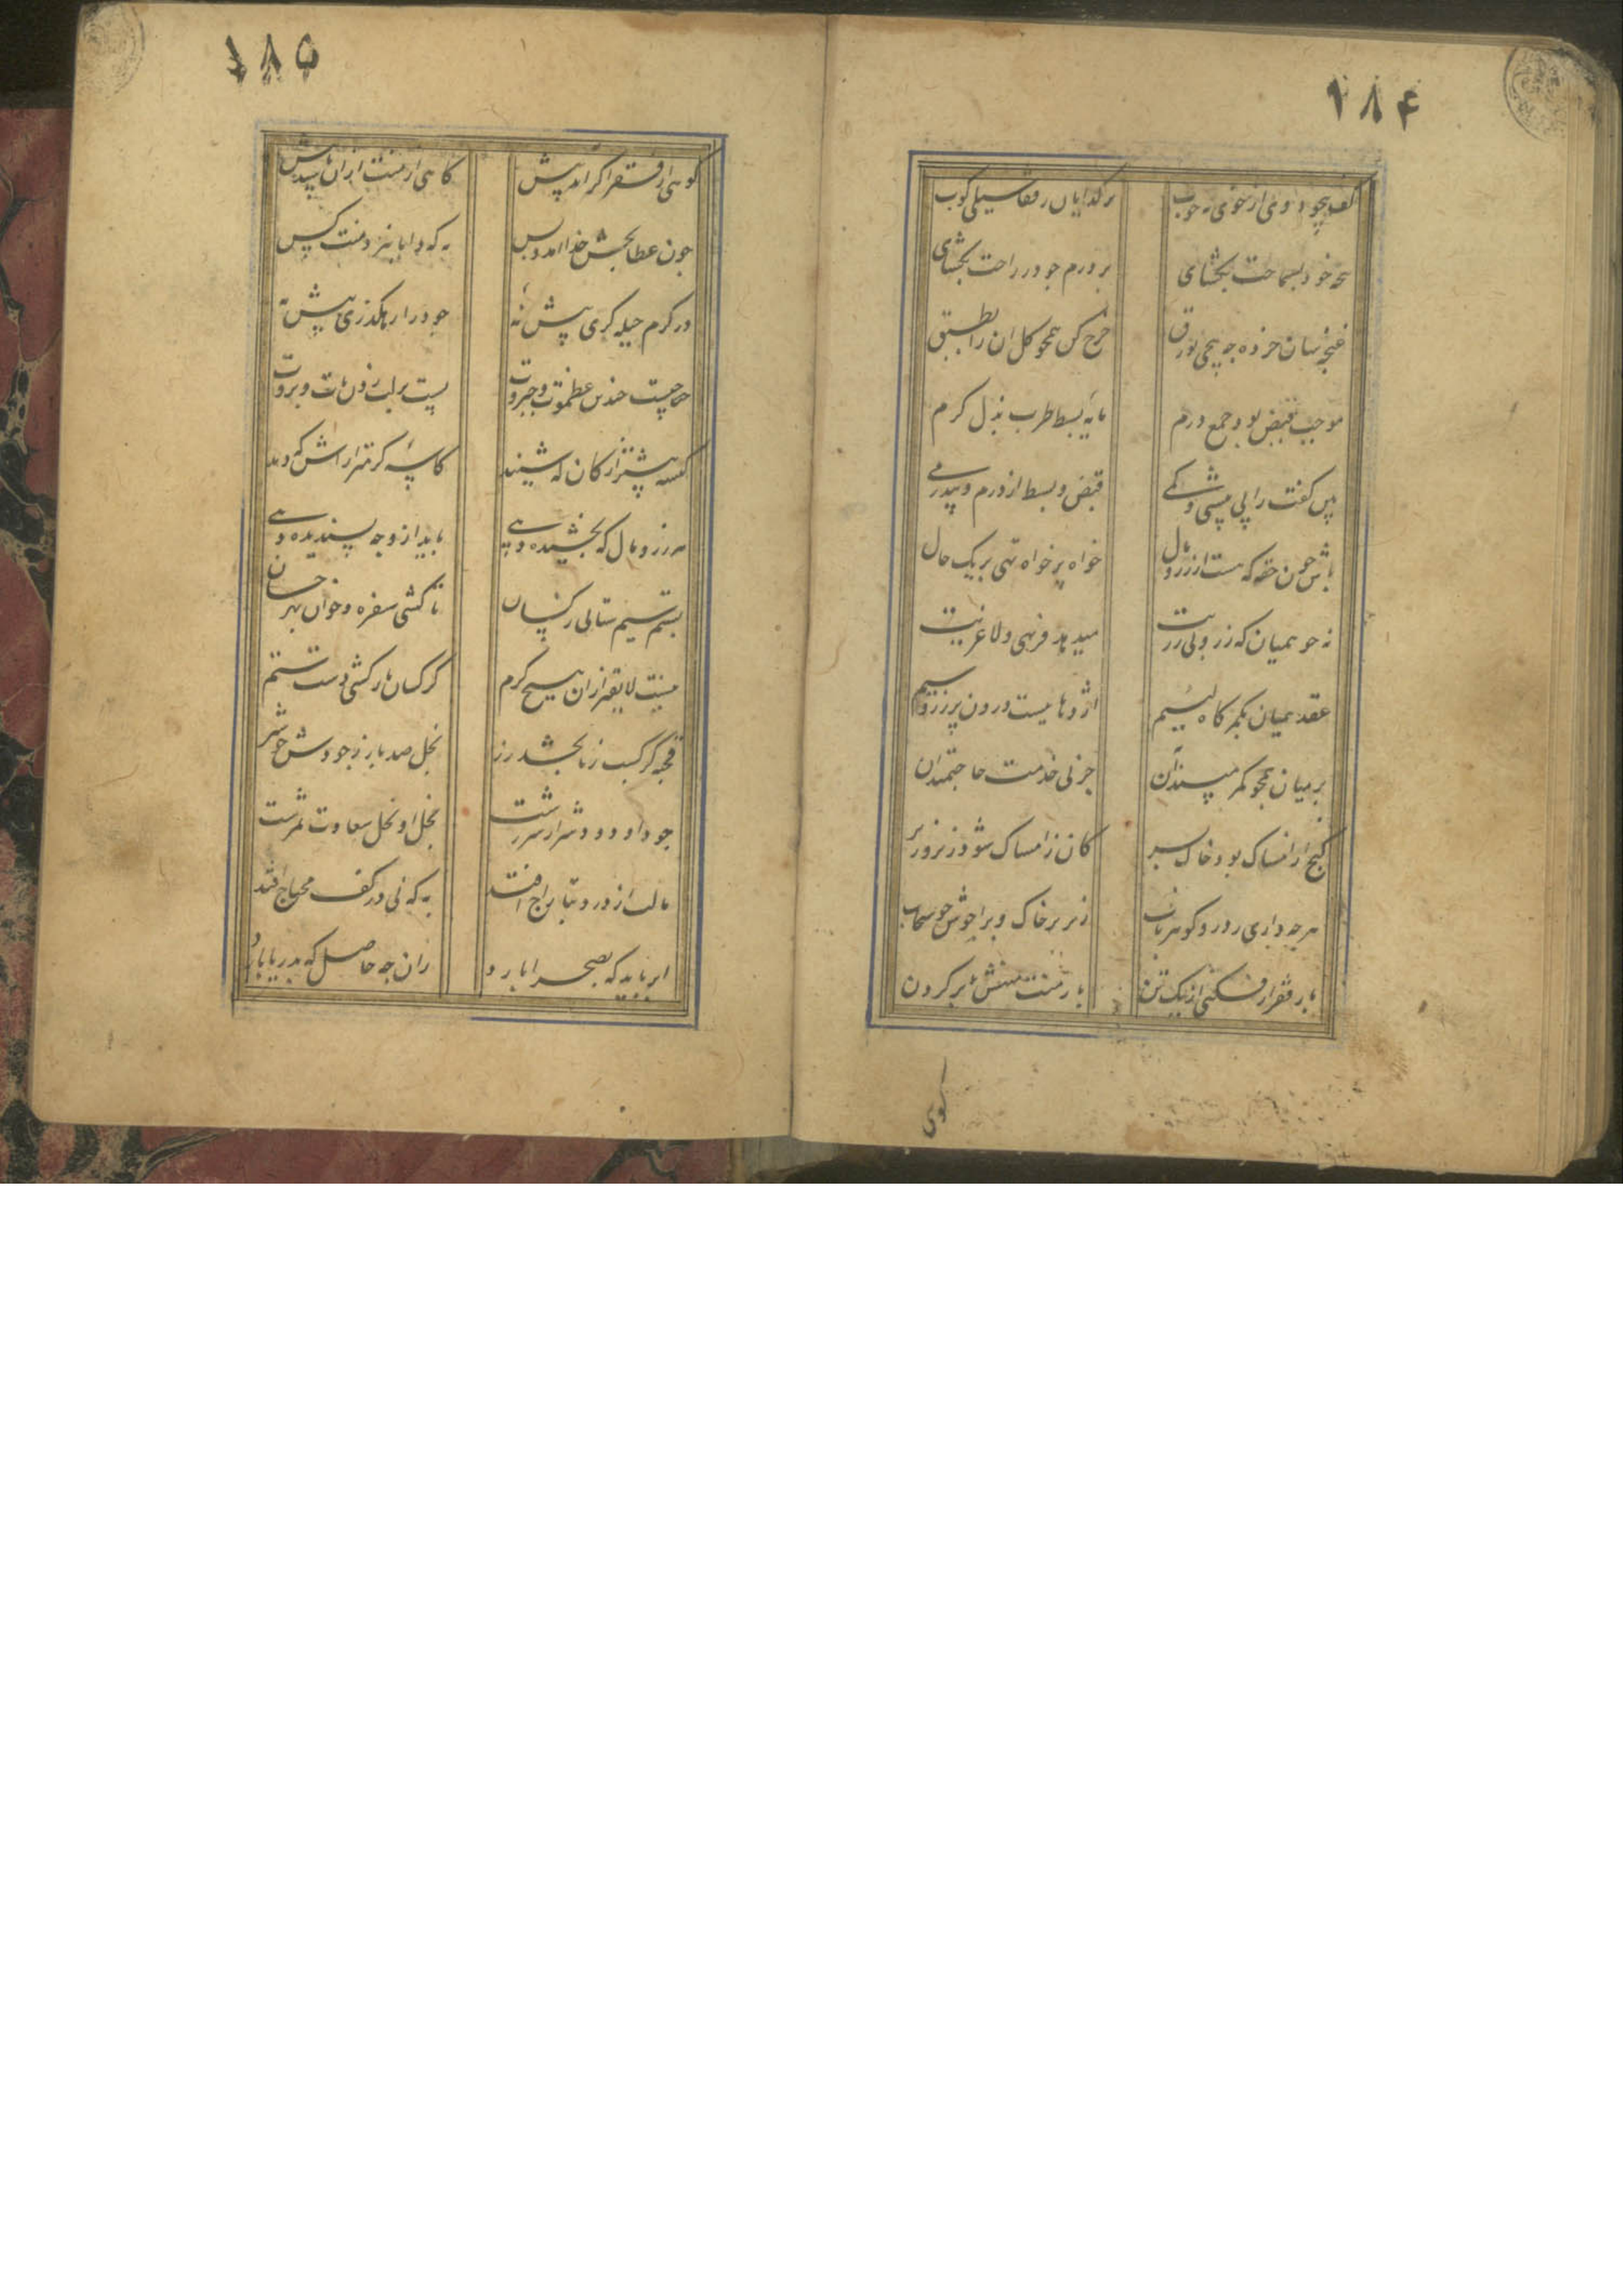 ۱۸۴
کف همچو دوی از خوی نه خوب
بر گدایان ز قفا سیلی کوب
نه خود بسماحت بگشای
بر درم جو در راحت بگشای
غنچه سان خرده چه پیچی بورق
خرج کن همچو گل آن را بطبق
موجب قبض بود جمع درم
مایه بسط طرب بذل کرم
پس کفت را پی بیشی و کمی
قبض و بسط از درم و بیدرمی
باش چون حقه که هست از زر و مال
خواه پر خواه تهی بر یک حال
نه چو همیان که زر و بی زریت
میدهد فربهی و لاغریت
عقد همیان بکمرگاه لئیم
اژدهاییست درون پر زر و سیم
بر میان همچو کمر مپسند آن
جز پی خدمت حاجتمندان
گنج از امساک بود خاک بسر
کان ز امساک شود زیر و زبر
هر چه داری ز در و گوهر ناب
زیر بر خاک و برا جوش سحاب
بار فقر ار فکنی از یک تن
بار منت منهش بر گردن
کوهی
۱۸۵
کوهی از فقر اگر آمد پیش
کاهی از منت ازان باشد بیش
چون عطابخش خدا آمد و بس
به که دانا ننهد منت کس
در کرم حیله گری پیش نه
جود را رهگذری بیش نه
چیست چندین عظموت و جبروت
بر لب زدن باد و بروت
کیسه بیشتر از کان که شنید
کاسه گرمتر از آش که دید
هر زر و مال که بخشیده دهی
باید از وجه پسندیده دهی
بستم سیم ستانی ز کسان
تا کشی سفره و خوان بهر خسان
نیست لایق ز تو این هیچ کرم
کز کسان بازکشی دست ستم
قحبه کز کسب زنا بخشد زر
بخل صد بار ز جودش خوشتر
جود او دود و شرار سقرست
بخل او نخل سعادت ثمرست
مالت از دزد بتاراج افتد
به که نی در کف محتاج افتد
ابر باید که بصحرا بارد
زان چه حاصل که بدریا بارد